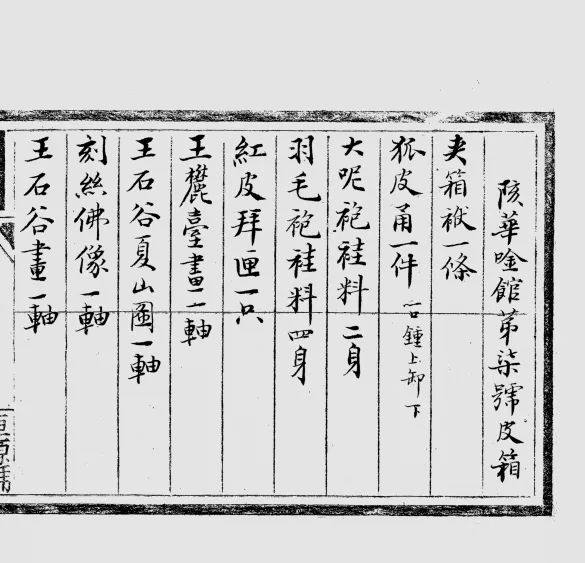 陔華唫館苐柒號皮箱
夾箱袱一條
狐皮甬一件 一口鍾上卸下
大呢袍袿料二身
羽毛袍袿料四身
紅皮拜匣一只
王麓臺畫一軸
王石谷夏山圖一軸
刻絲佛像一軸
王石谷畫一軸